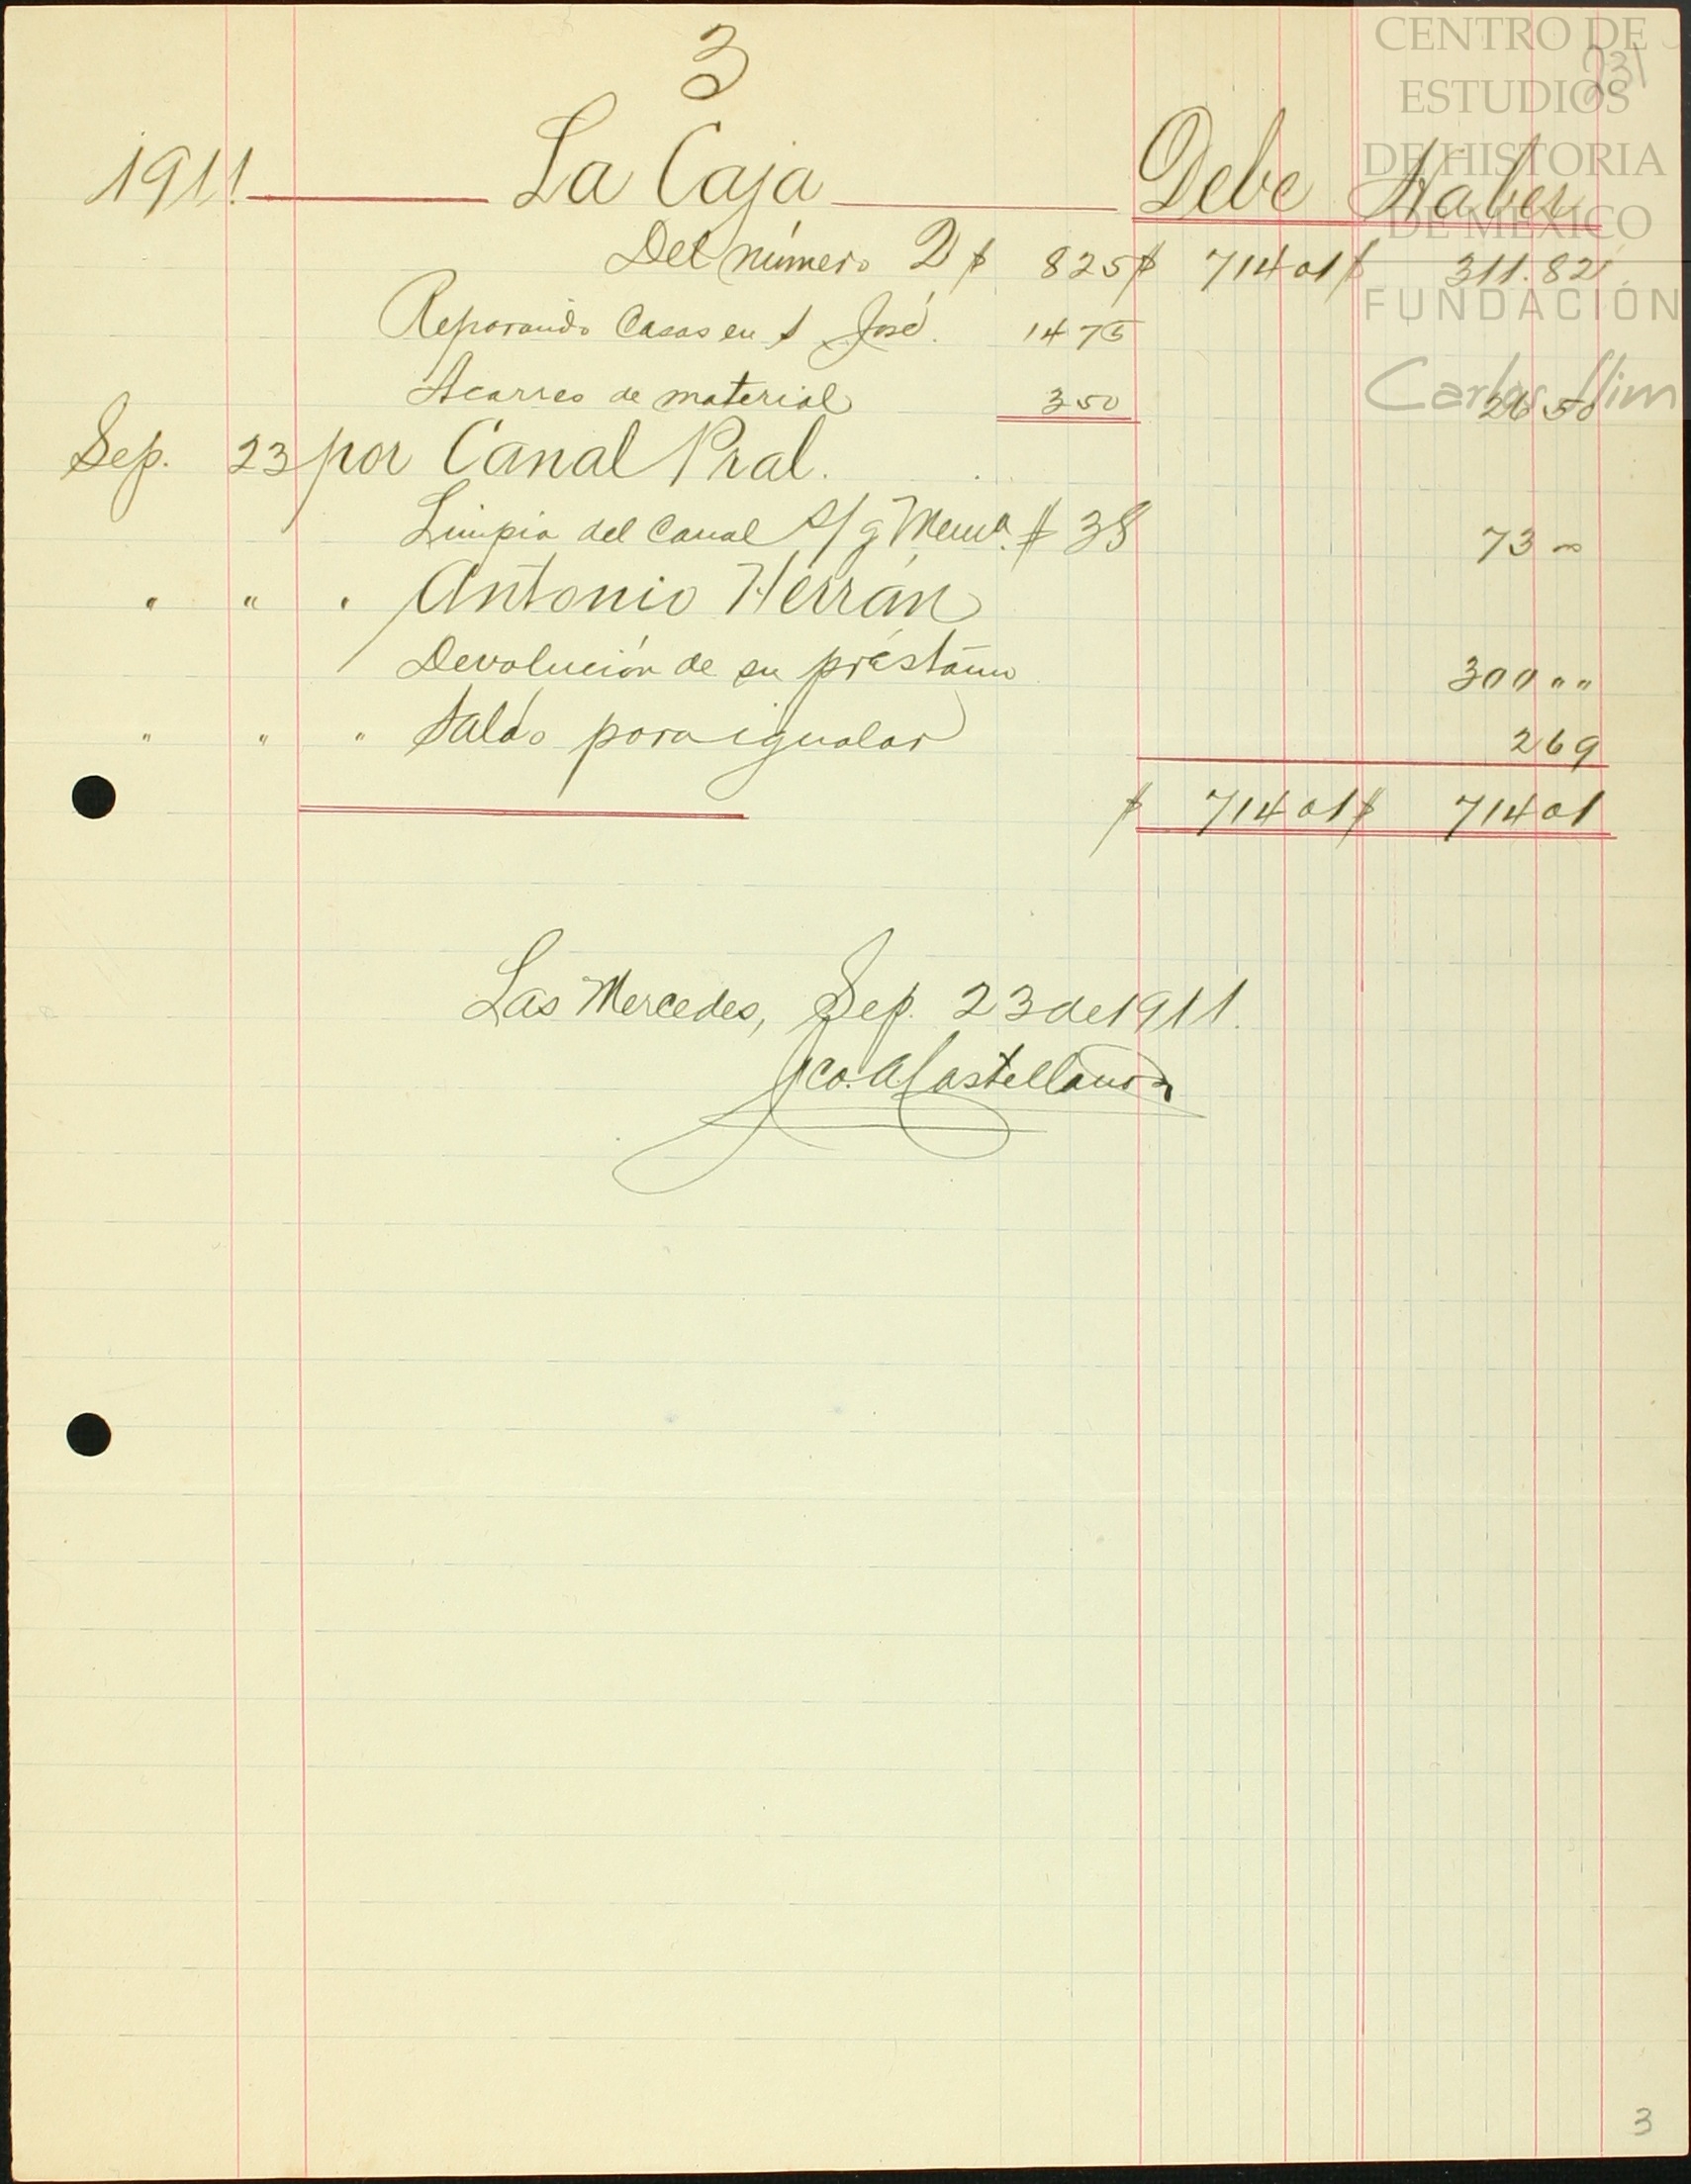 3
231
CENTRO DE
ESTUDIOS
DE HISTORIA
DE MÉXICO
FUNDACIÓN
Carlos Slim
1911. La Caja Debe Haber
Del número 2 $ 825 $ 714 01 $ 311.82
Reparando Casas en S José. 14 75
Acarreo de material 350 26 50
Sep. 23 por Canal Pral.
Limpia del Canal S/g Memª. # 38 73 "
" " " Antonio Herrán
Devolución de su préstamo 300 " "
" " " Saldo para igualar 2 69
$ 714 01 $ 714 01
Las Mercedes, Sep. 23 de 1911.
Fco. A Castellanos
3